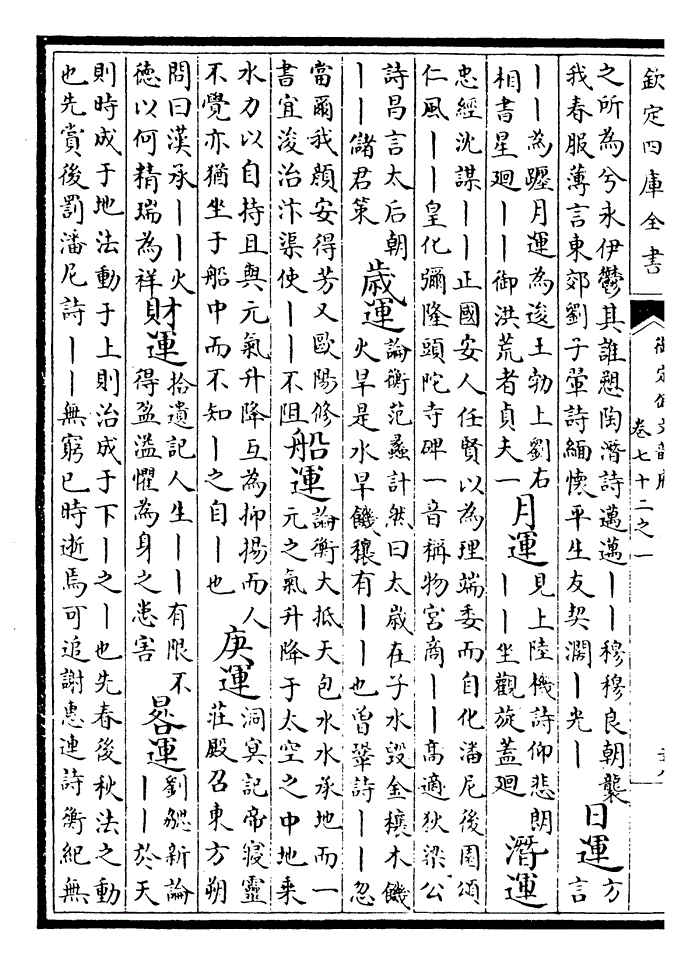 欽定四庫全書
御定佩文韻府
卷七十二之一
之所為兮永伊鬱其誰愬陶潛詩邁邁丨丨穆穆良朝襲
我春服薄言東郊劉子翬詩緬懷平生友契濶丨光丨
日運
方
言
丨丨為躔月運為逡王勃上劉右
相書星廻丨丨御洪荒者貞夫一
月運
見上陸機詩仰悲朗
丨丨坐觀旋蓋廻
潛運
忠經沈謀丨丨正國安人任賢以為理端委而自化潘尼後園頌
仁風丨丨皇化彌隆頭陀寺碑一音稱物宮商丨丨高適狄梁公
詩昌言太后朝
丨丨儲君策
歲運
論衡范蠡計然曰太歲在子水毀金穰木饑
火旱是水旱饑穰有丨丨也曾鞏詩丨丨忽
當爾我顔安得芳又歐陽修
書宜浚治汴渠使丨丨不阻
船運
論衡大抵天包水水承地而一
元之氣升降于太空之中地乗
水力以自持且與元氣升降互為抑揚而人
不覺亦猶坐于船中而不知丨之自丨也
庚運
洞冥記帝寢靈
莊殿召東方朔
問曰漢承丨丨火
德以何精瑞為祥
財運
拾遺記人生丨丨有限不
得盈溢懼為身之患害
晷運
劉勰新論
丨丨於天
則時成于地法動于上則治成于下丨之丨也先春後秋法之動
也先賞後罰潘尼詩丨丨無窮已時逝焉可追謝惠連詩衡紀無